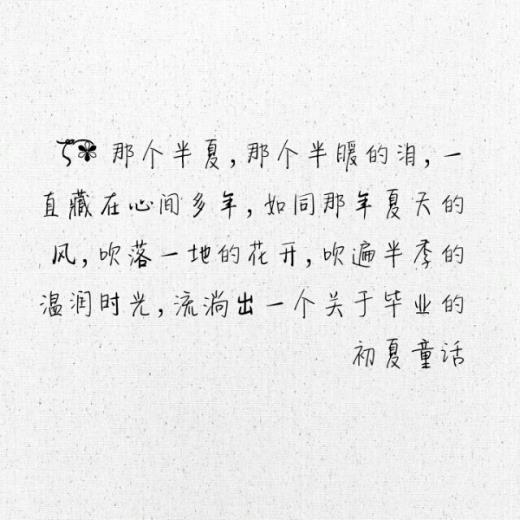 那个半夏,那个半暖的泪,一
直藏在心间多年,如同那年夏天的
风,吹落一地的花开,吹遍半季的
温润时光,流淌出一个关于毕业的
初夏童话